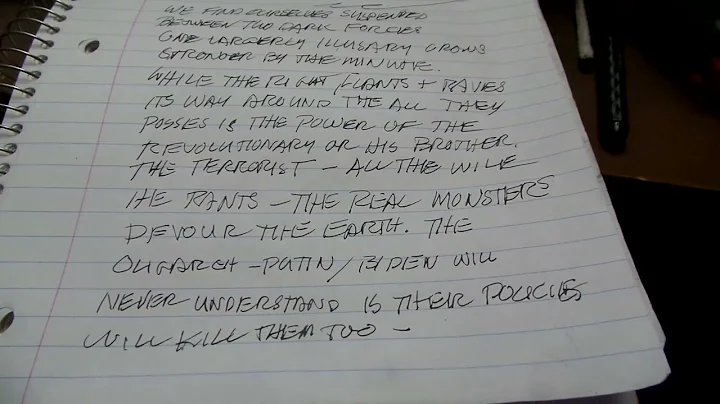 WE FIND OURSELVES SUSPENDED
BETWEEN TWO DARK FORCES
ONE LARGERLY ILLUSARY GROWS
STRONGER BY THE MINUTE.
WHILE THE RIGHT RANTS + RAVES
ITS WAY AROUND THE ALL THEY
POSSES IS THE POWER OF THE
REVOLUTIONARY OR HIS BROTHER.
THE TERRORIST - ALL THE WILE
HE RANTS - THE REAL MONSTERS
DEVOUR THE EARTH. THE
OLIGARCH - PUTIN/BIDEN WILL
NEVER UNDERSTAND IS THEIR POLICIES
WILL KILL THEM TOO -